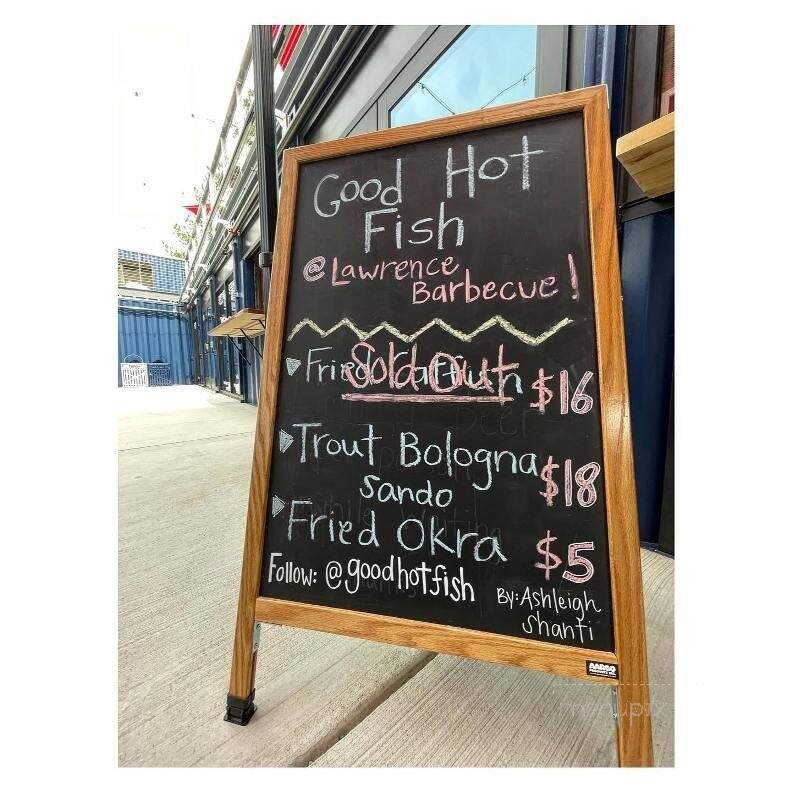 Good Hot
Fish
@Lawrence
Barbecue!
Fried Catfish $16
Sold Out
Trout Bologna $18
Sando
Fried Okra $5
Follow: @goodhotfish
By: Ashleigh
Shanti
AARCO